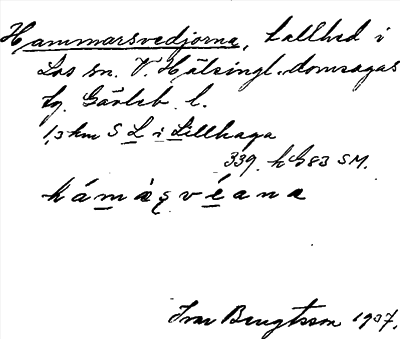 Hammarsvedjorna, tallhed i
Los sn. V. Hälsingl. domsagas
tg. Gävleb. l.
1,3 km S L i Lillhaga
339. h G83 SM.
hámàşvéana
Ivar Bengtsson 1937.